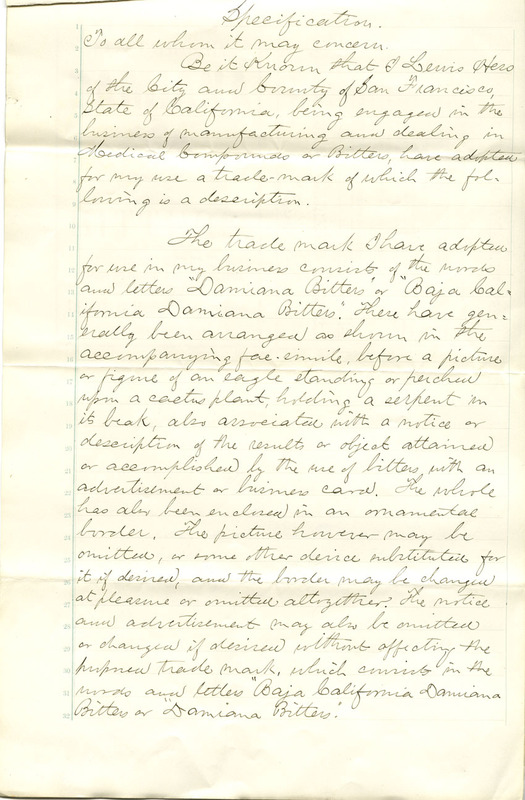 Specification.
To all whom it may concern.
Be it Known that I Lewis Hess
of the City and County of San Francisco,
State of California, being engaged in the
business of manufacturing and dealing in
Medical Compounds or Bitters, have adopted
for my use a trade-mark of which the fol-
lowing is a description.
The trade mark I have adopted
for use in my business consists of the words
and letters "Damiana Bitters" or "Baja Cal-
ifornia Damiana Bitters". These have gen-
erally been arranged as shown in the
accompanying fac-simile, before a picture
or figure of an eagle standing or perched
upon a cactus plant holding a serpent in
its beak, also associated with a notice or
description of the results or object attained
or accomplished by the use of bitters, with an
advertisement or business card. The whole
has also been enclosed in an ornamental
border. The picture however may be
omitted, or some other device substituted for
it if desired, and the border may be changed
at pleasure or omitted altogether. The notice
and advertisement may also be omitted
or changed if desired without affecting the
proposed trade mark, which consists in the
words and letters "Baja California Damiana
Bitters or "Damiana Bitters".